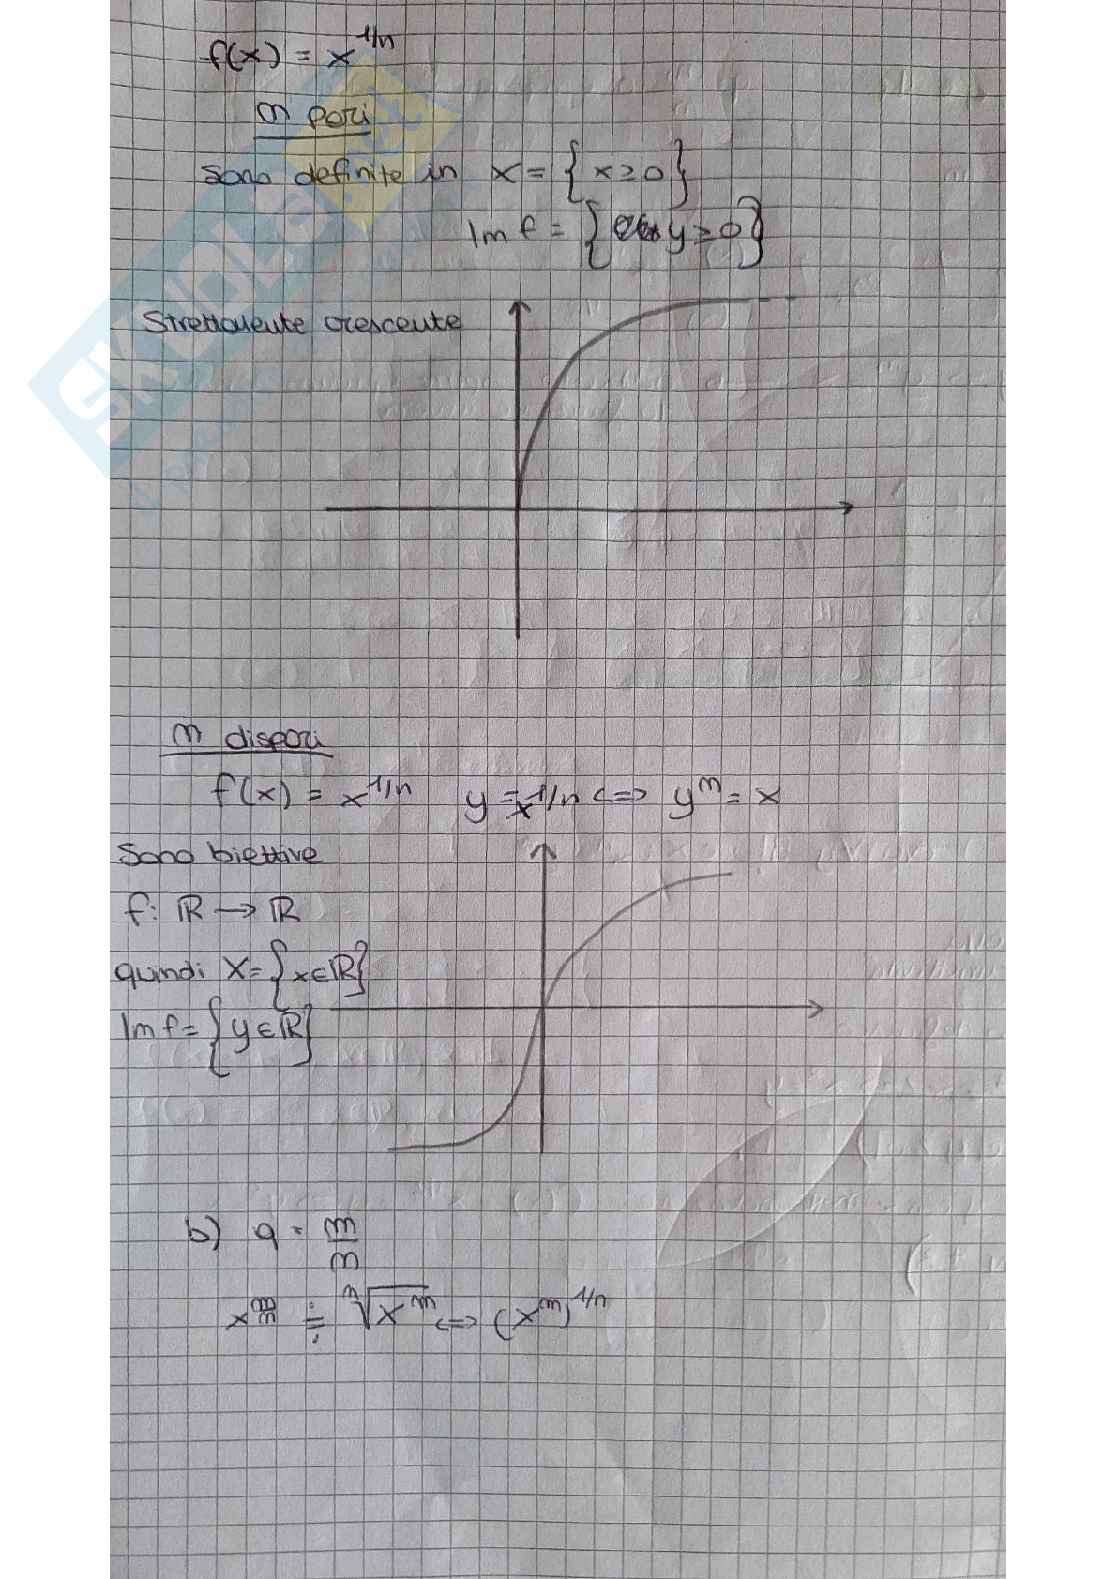 f(x) = x^1/n
n pari
sono definite in X = { x ≥ 0 }
Im f = { y ≥ 0 }
Strettamente crescente
n dispari
f(x) = x^1/n y = x^1/n <=> y^n = x
Sono biettive
f: ℝ → ℝ
quindi X = { x ∈ ℝ }
Im f = { y ∈ ℝ }
b) q = m/n
x^m/n ≑ ⁿ√x^m <=> (x^m)^1/n
SKUOLA.net